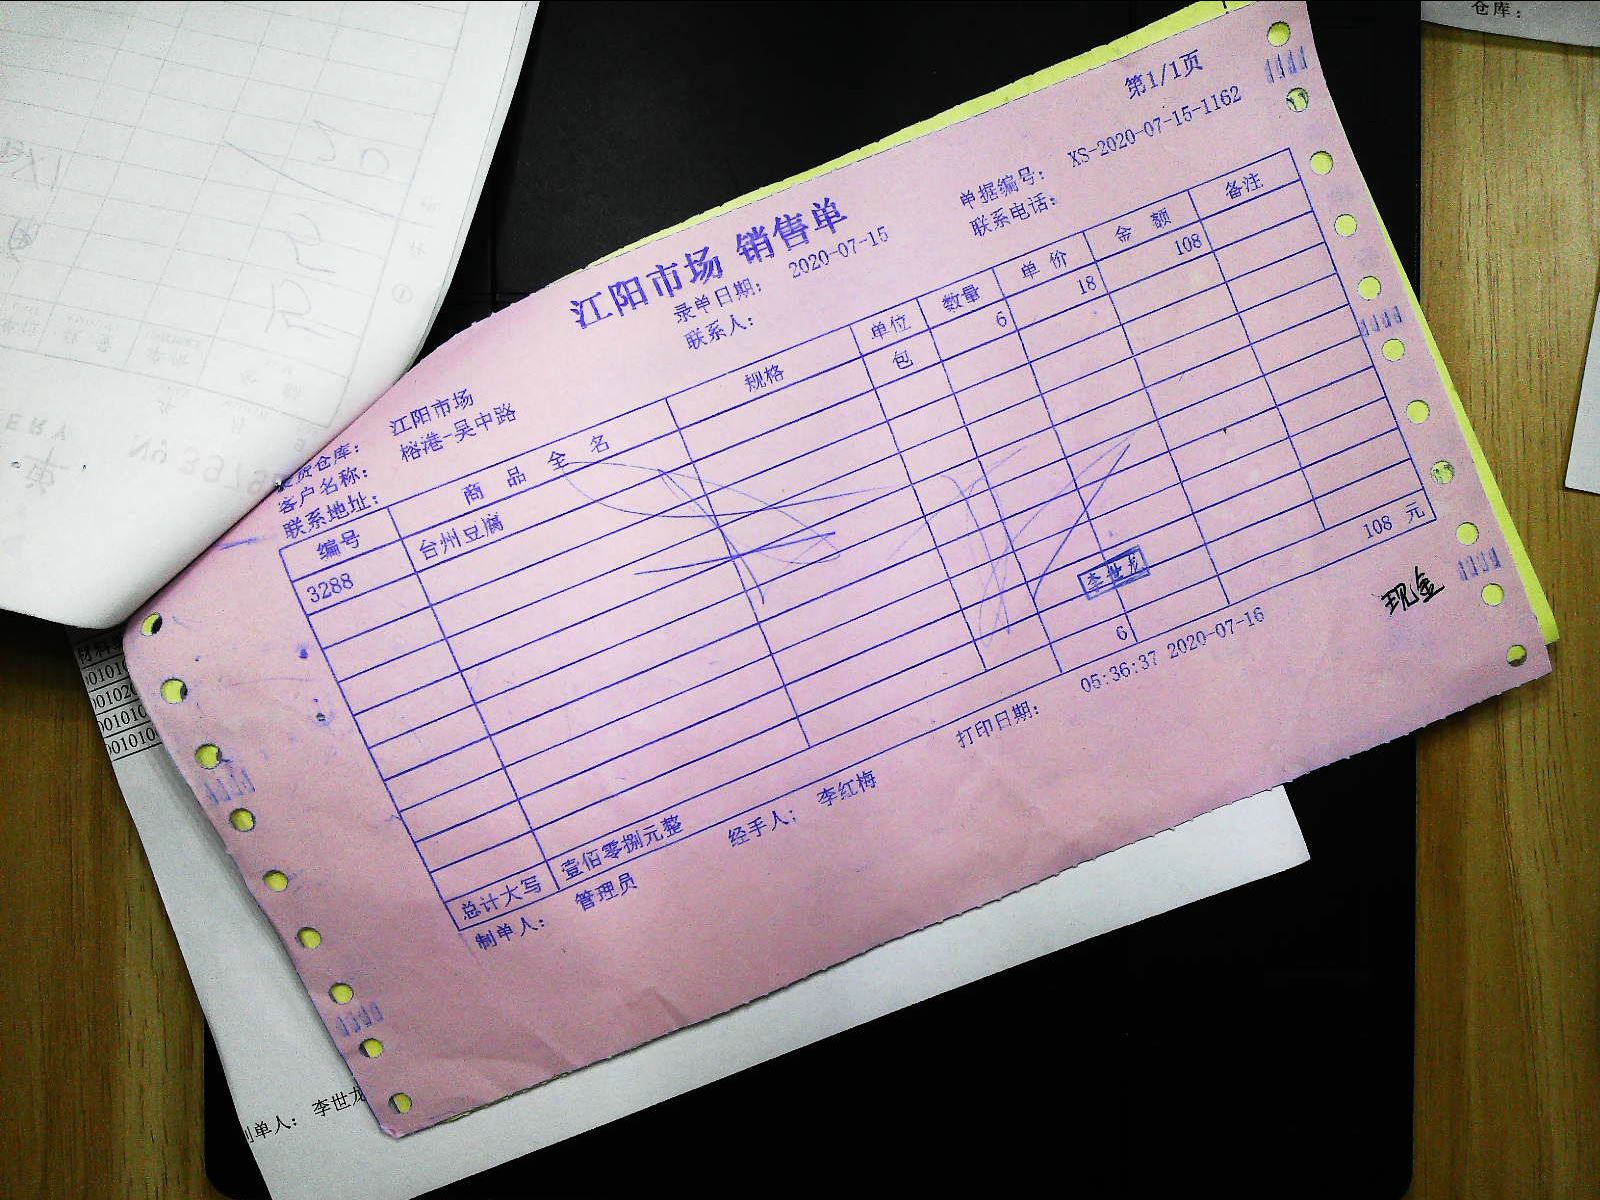 仓库：
第1/1页
江阳市场 销售单
单据编号： XS-2020-07-15-1162
录单日期： 2020-07-15
联系电话：
联系人：
货仓库： 江阳市场
客户名称： 榕港-吴中路
联系地址：
编号 商品全名 规格 单位 数量 单价 金额 备注
3288 台州豆腐 包 6 18 108
李世龙
总计大写 壹佰零捌元整 6 108 元
制单人： 管理员 经手人： 李红梅 打印日期： 05:36:37 2020-07-16
现金
制单人： 李世龙